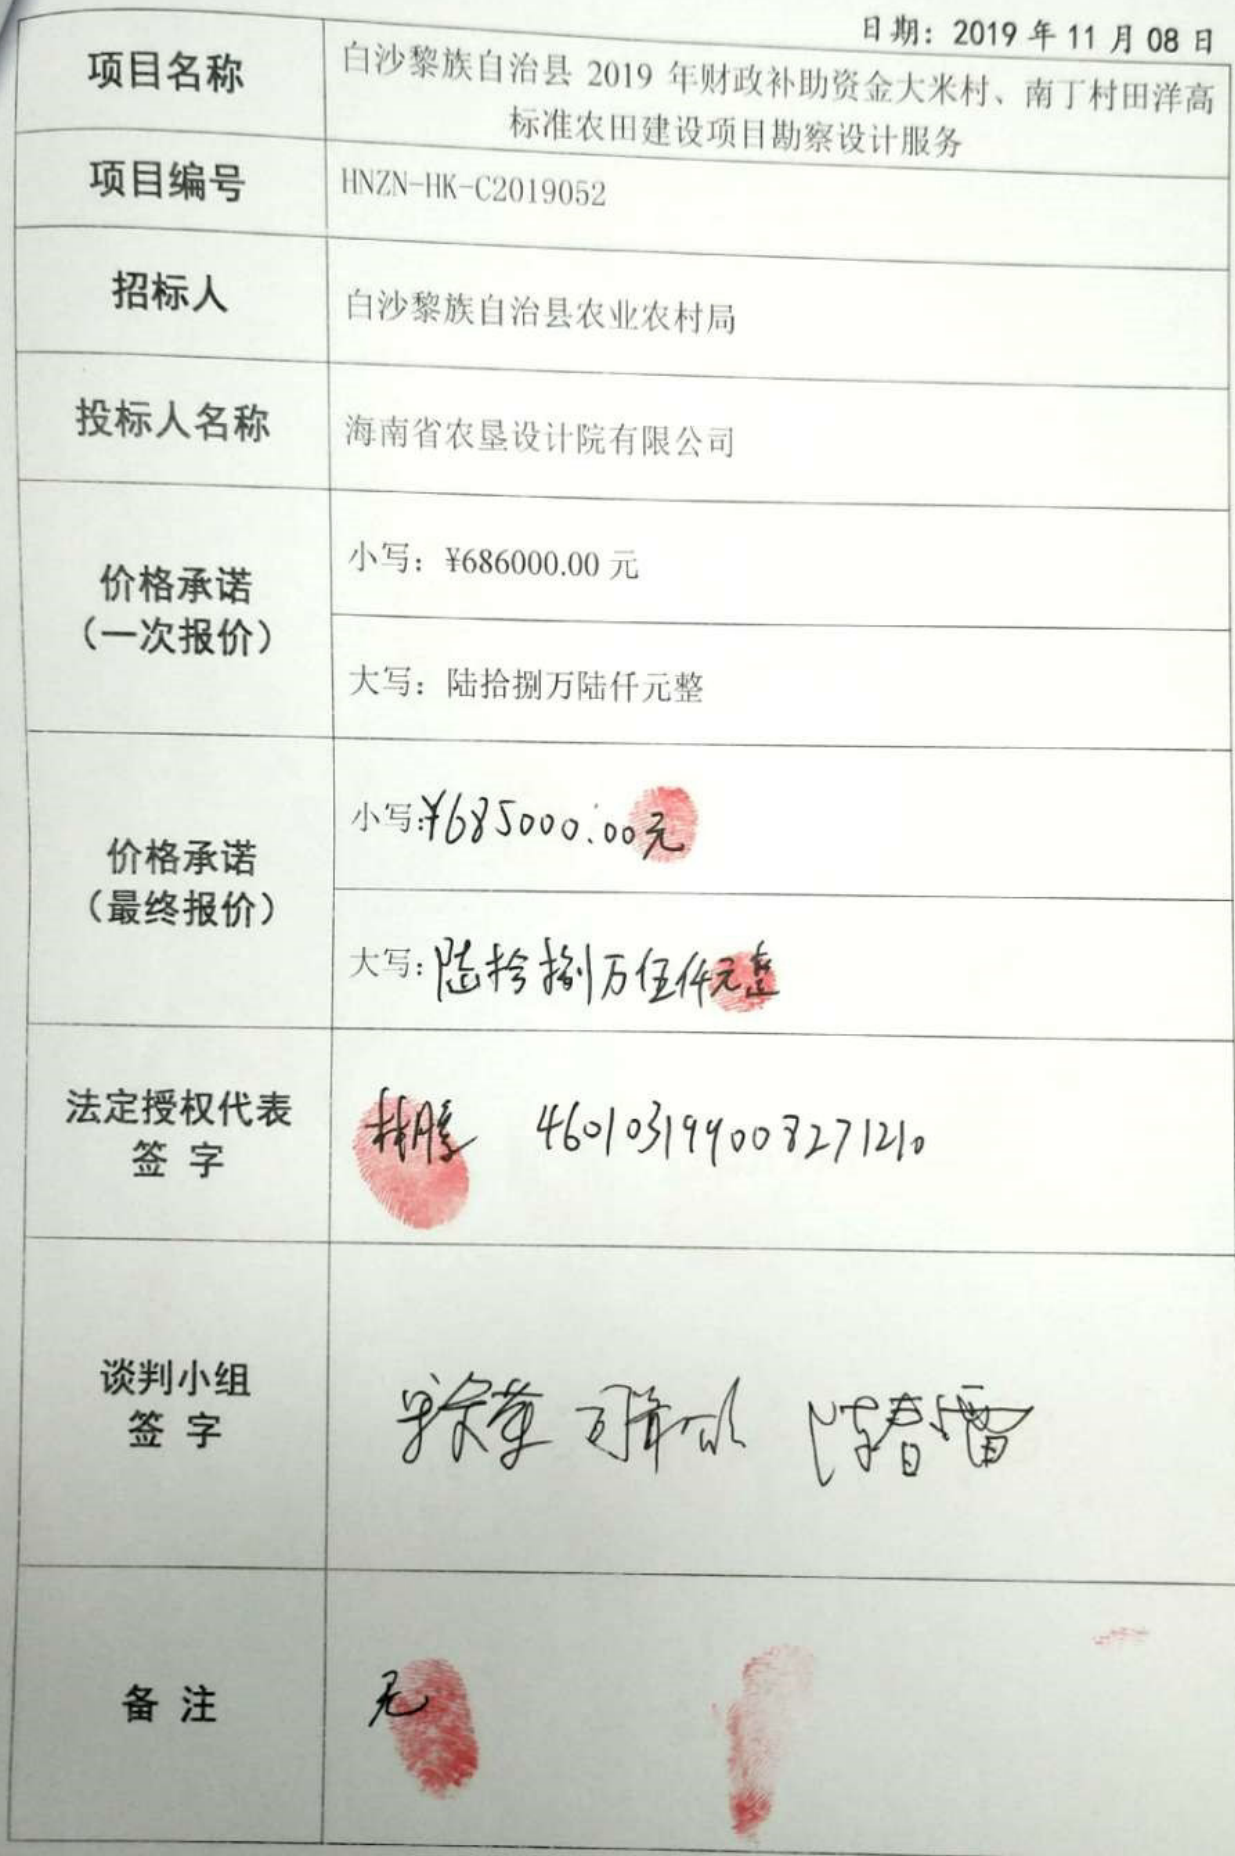 日期：2019 年 11 月 08 日
项目名称
白沙黎族自治县 2019 年财政补助资金大米村、南丁村田洋高
标准农田建设项目勘察设计服务
项目编号
HNZN-HK-C2019052
招标人
白沙黎族自治县农业农村局
投标人名称
海南省农垦设计院有限公司
价格承诺
（一次报价）
小写：¥686000.00 元
大写：陆拾捌万陆仟元整
价格承诺
（最终报价）
小写:¥685000.00元
大写:陆拾捌万伍仟元整
法定授权代表
签 字
林腾 460103199008271210
谈判小组
签 字
陈春雷
备 注
无